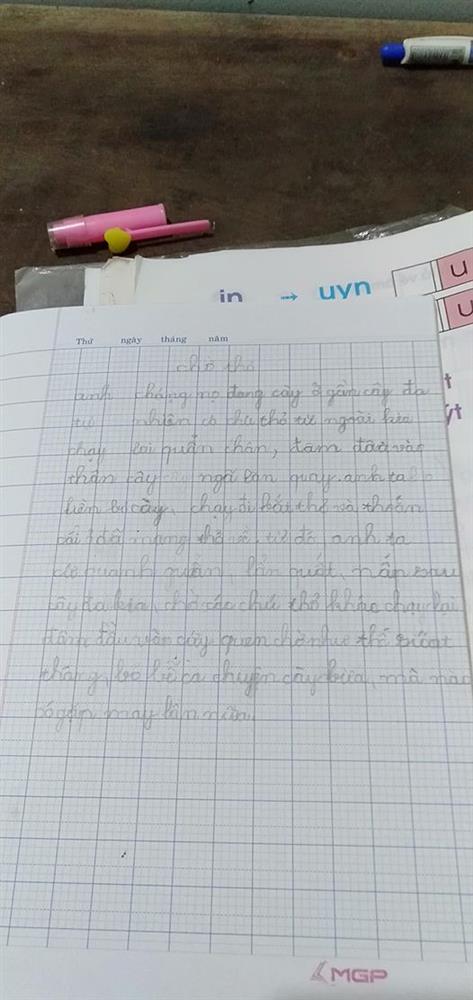 in → uyn
u
u
t
ýt
Thứ ngày tháng năm
chờ thỏ
anh chàng nọ đang cày ở gần cây đa
tự nhiên có chú thỏ từ ngoài kia
chạy lại quẩn chân, đâm đầu vào
thân cây ngã lăn quay. anh ta
liền bỏ cày, chạy đi bắt thỏ và
mang thỏ về, từ đó anh ta
quanh quẩn, lẩn quất, nấp sau
cây đa kia, chờ các chú thỏ khác chạy lại
đâm đầu vào cây quen chờ như thế suốt
tháng, bỏ cả chuyện cày bừa, mà nào
có gặp may lần nữa.
MGP